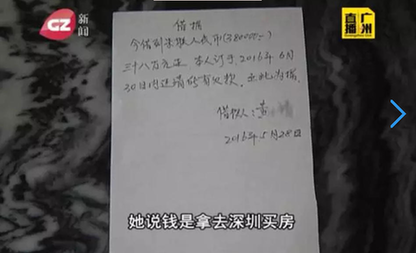 GZ
新闻
直播
广州
借据
今借到朱 人民币(380000.-)
三十八万元正 本人订于2016年6月
30日内还清所有欠款 立此为据.
借款人:黄
2016年5月28日
她说钱是拿去深圳买房